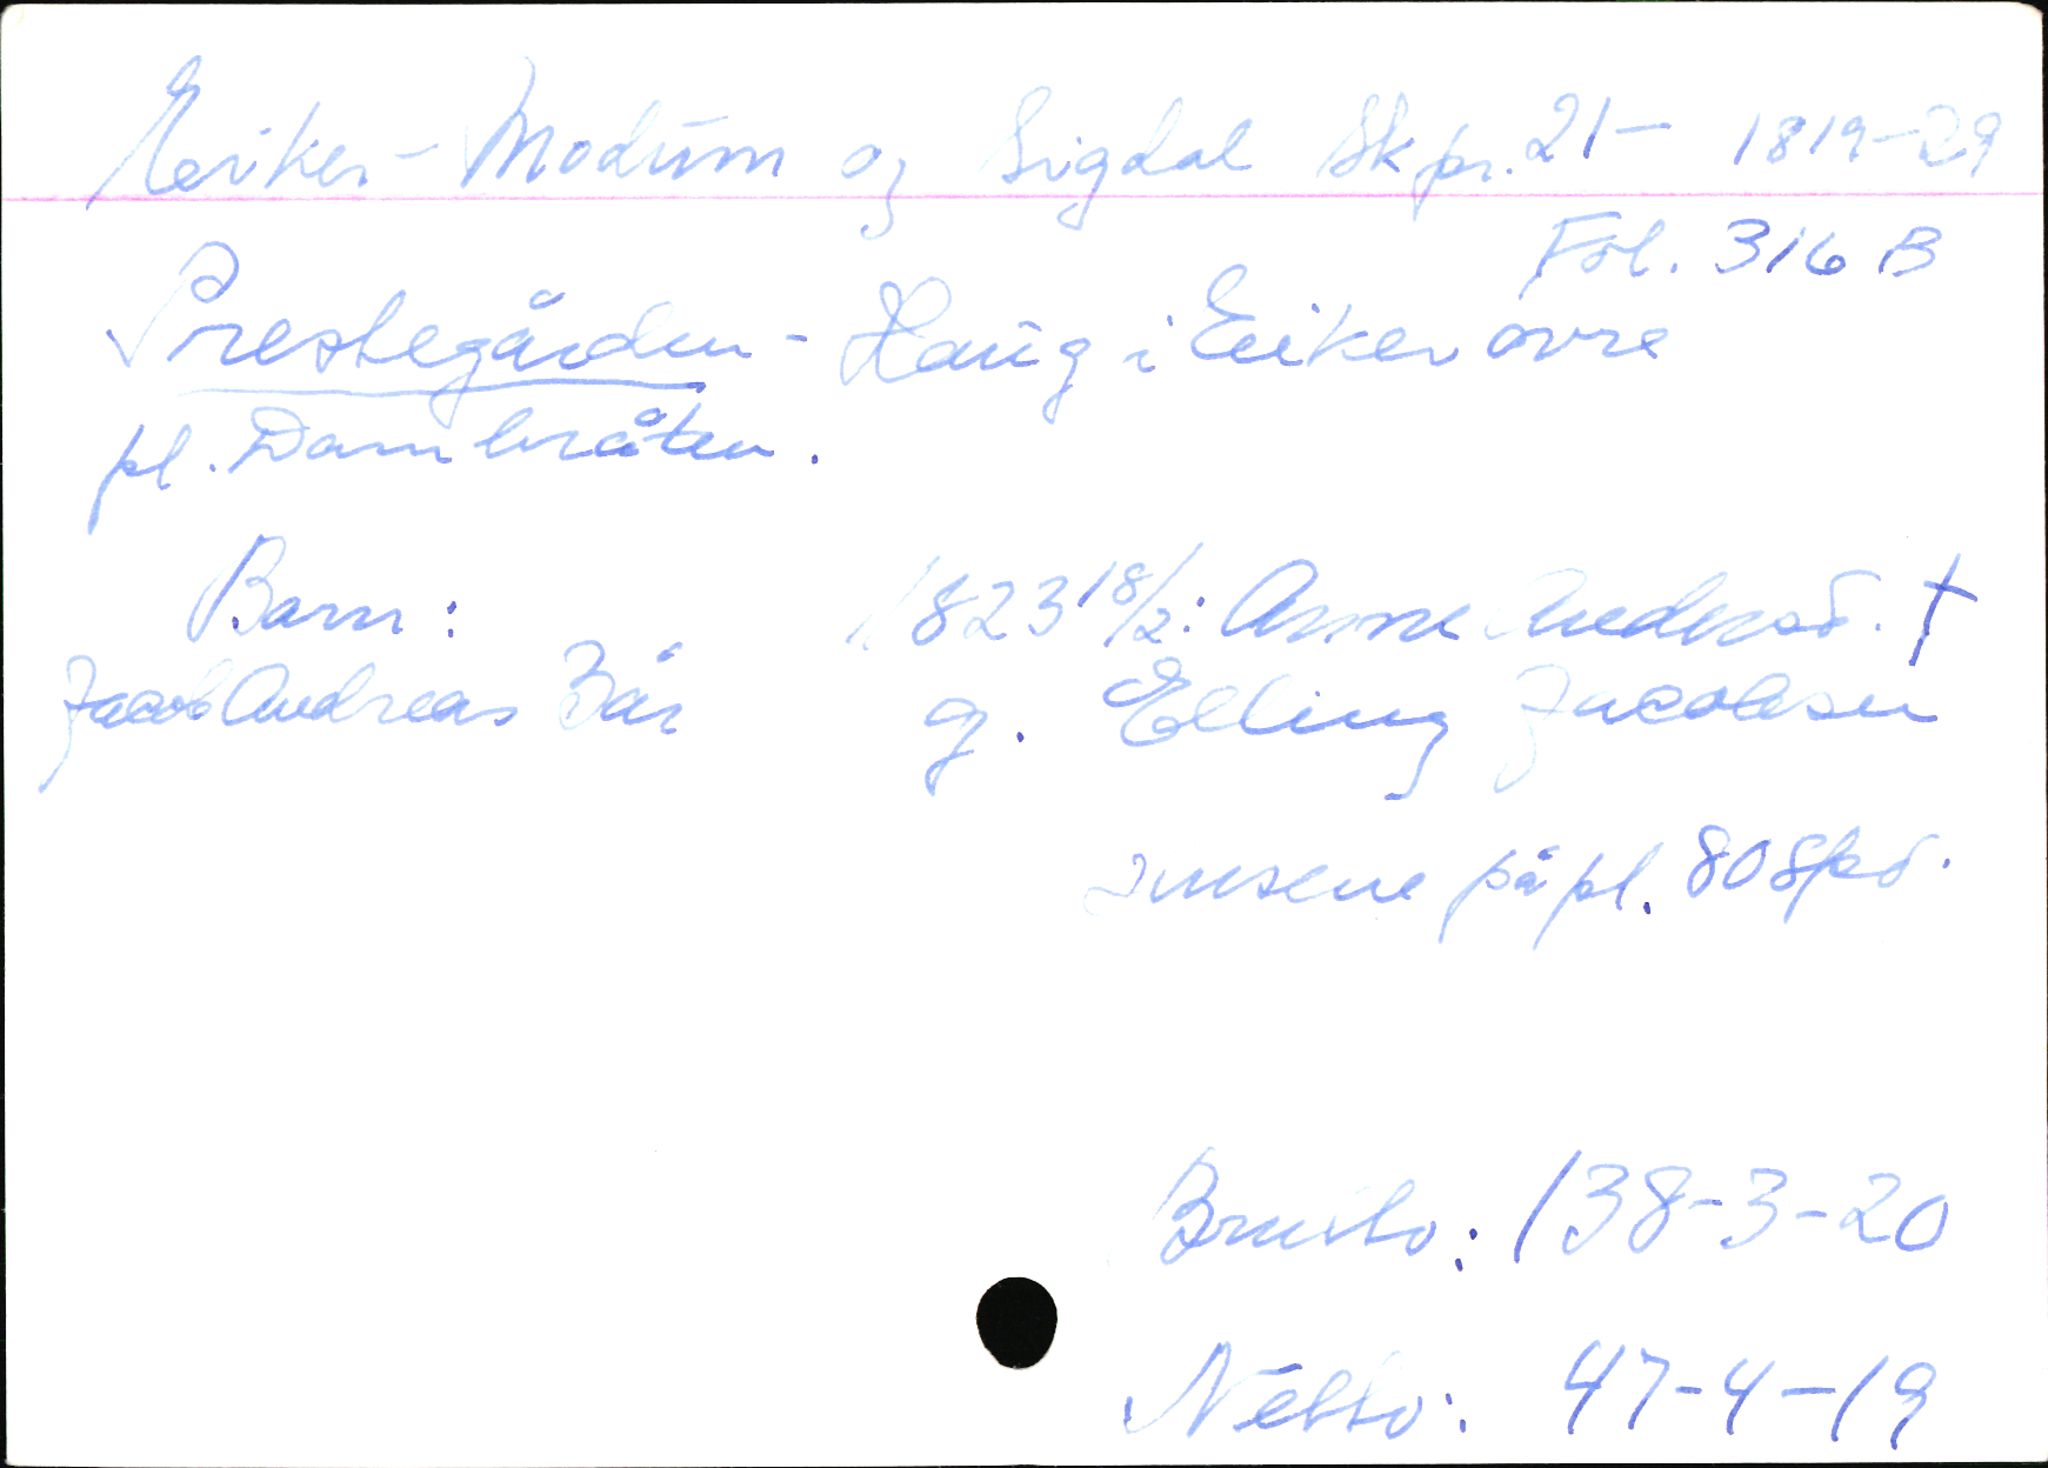 Eiker - Modum og Sigdal Skpr. 21 - 1819-29
Fol. 316 B
Prestegården - Haug i Eiker øvre
pl. Dambråten.
Barn:
Jacob Andreas 3 år
1823 18/2: Anne Andersd. †
g. Elling Jacobsen
Husene på pl. 80 Spd.
Brutto: 138-3-20
Netto: 47-4-19